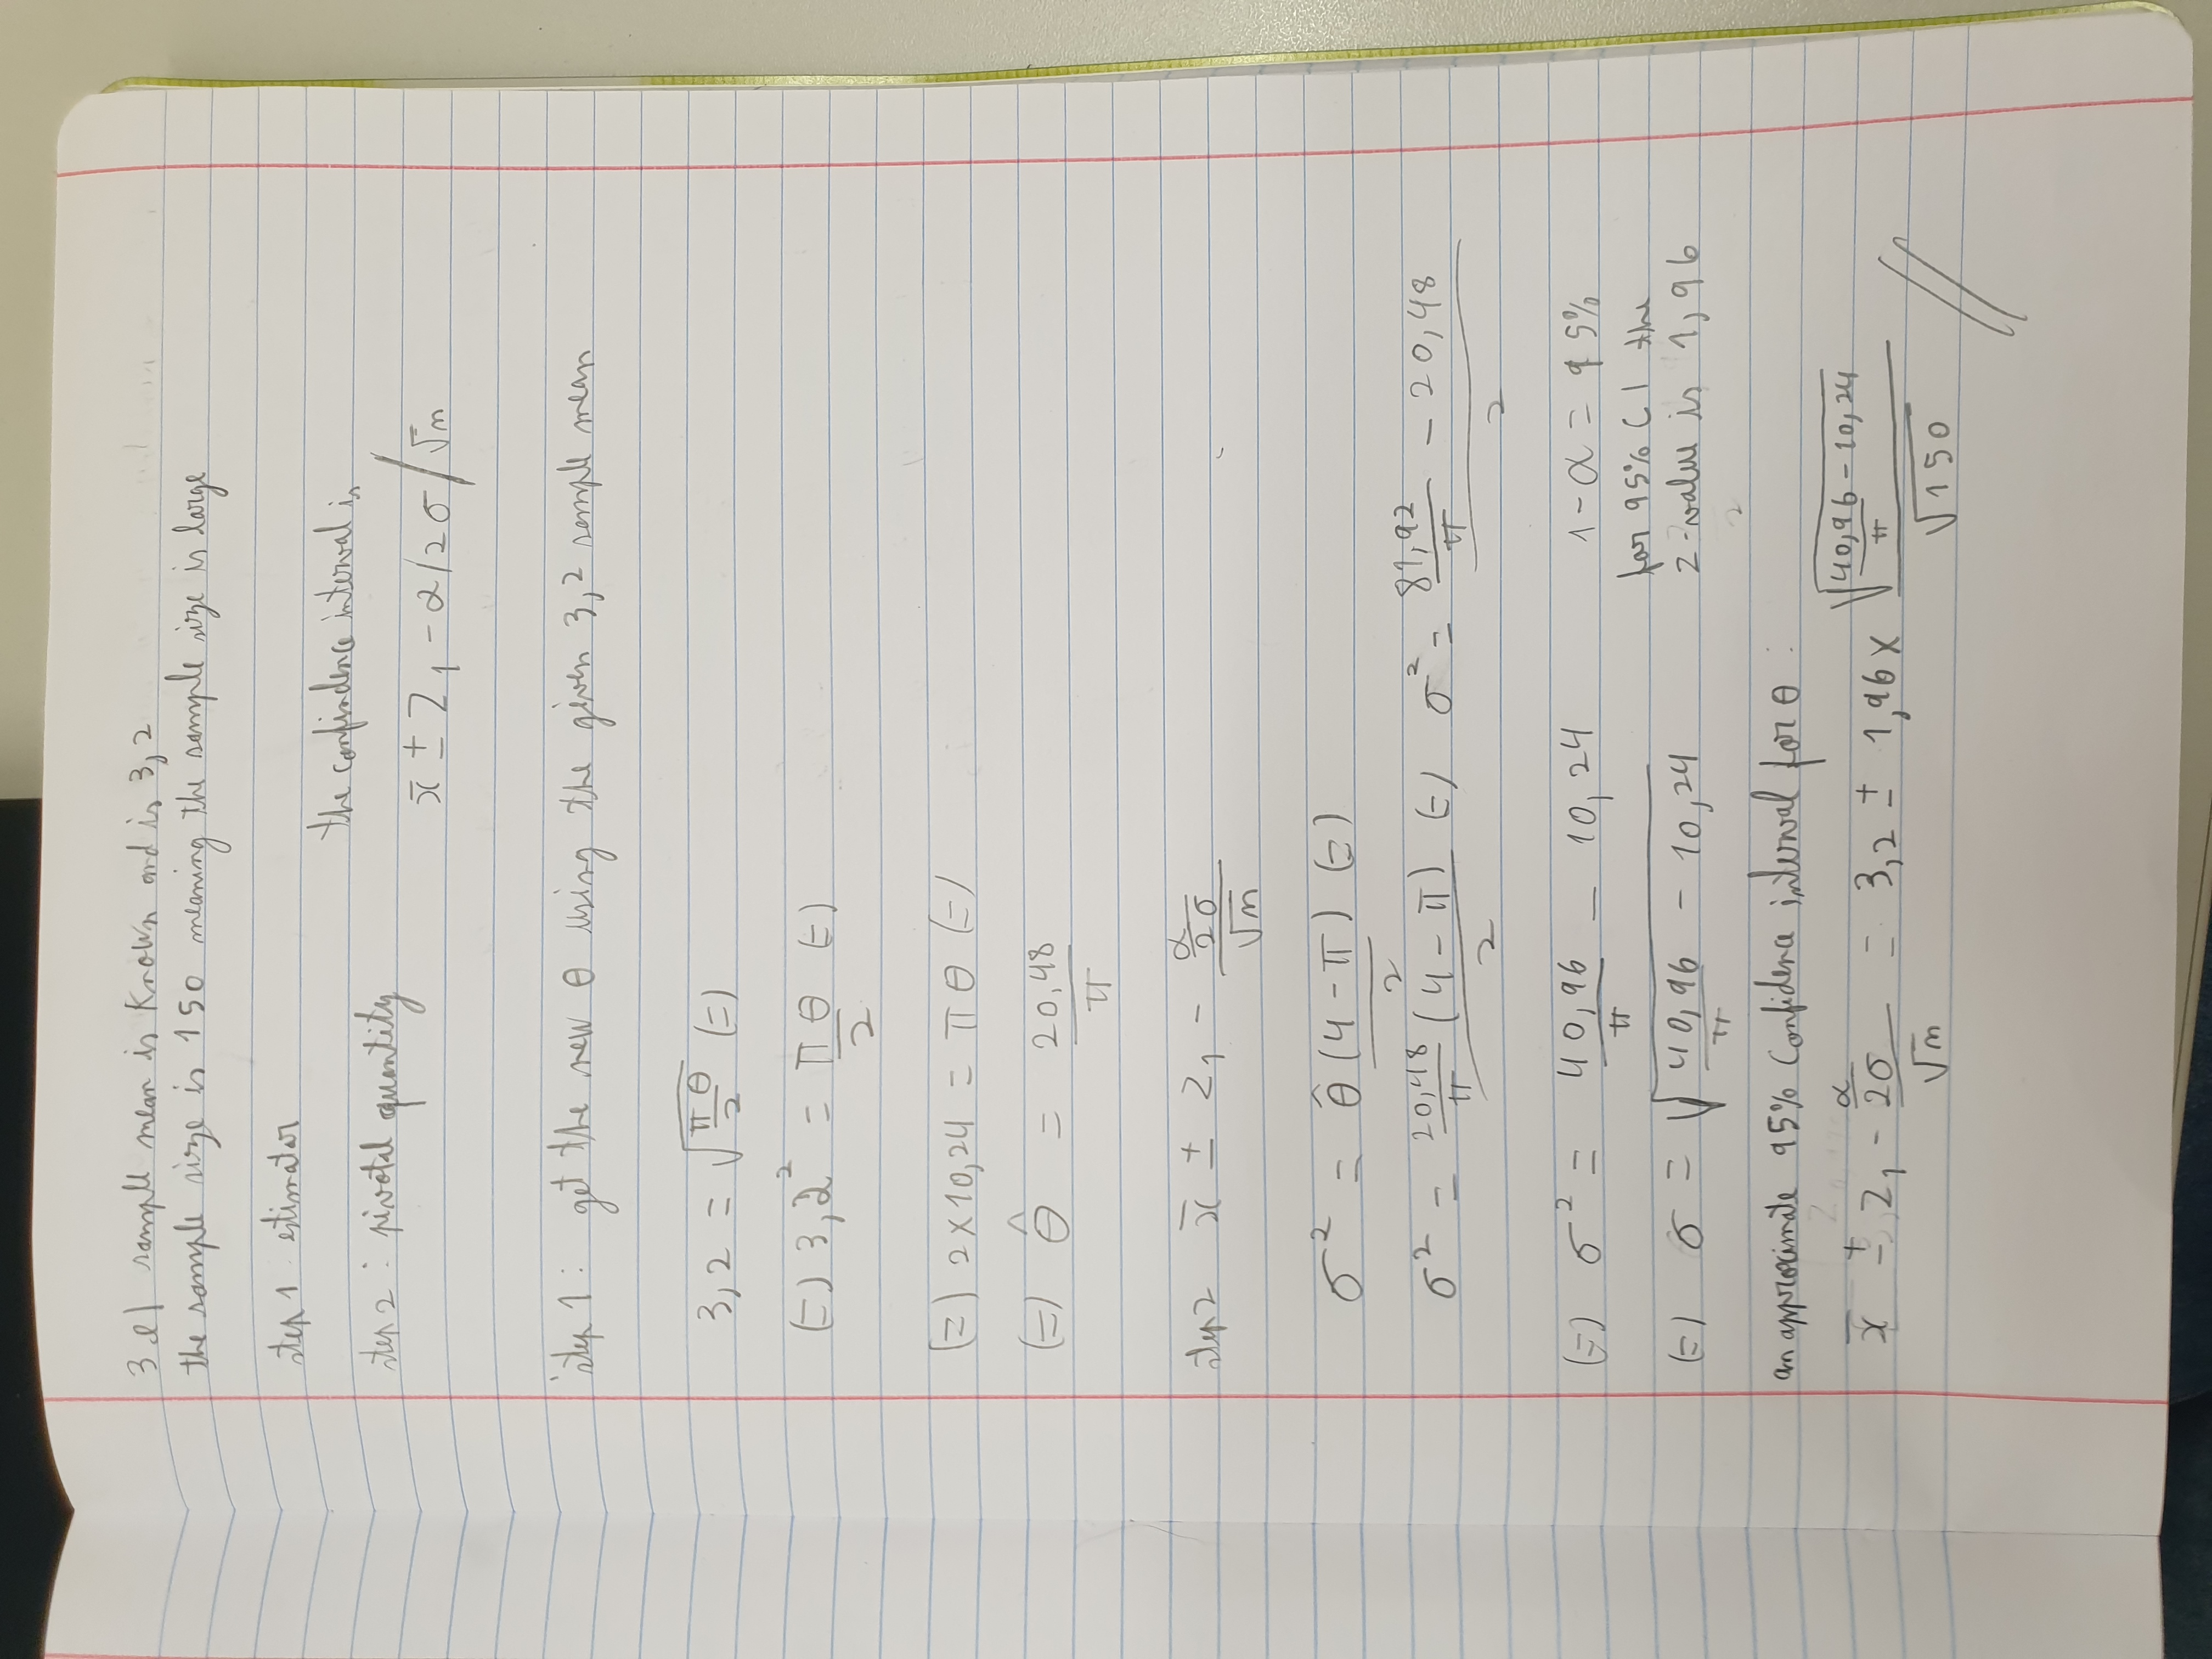 3 e) sample mean is known and is 3,2
the sample size is 150 meaning the sample size is large
step 1 estimator
the confindence interval is
step 2 : pivotal quantity
x̄ ± Z₁ - α/2 σ/√n
step 1: get the new θ using the given 3,2 sample mean
3,2 = √(πθ/2) (=)
(=) 3,2² = πθ/2 (=)
(=) 2×10,24 = πθ (=)
(=) θ̂ = 20,48/π
step 2 x̄ ± Z₁ - (α/2σ)/√n
σ² = θ̂(4-π)/2 (=)
σ² = (20,48/π (4-π))/2 (=) σ² = (81,92/π - 20,48)/2
(=) σ² = 40,96/π - 10,24 1-α = 95%
for 95% CI the
(=) σ = √(40,96/π - 10,24) z-value is 1,96
an approximate 95% Confidence interval for θ :
x̄ ± Z₁ - (α/2σ)/√n = 3,2 ± 1,96 × √(40,96/π - 10,24)/√150